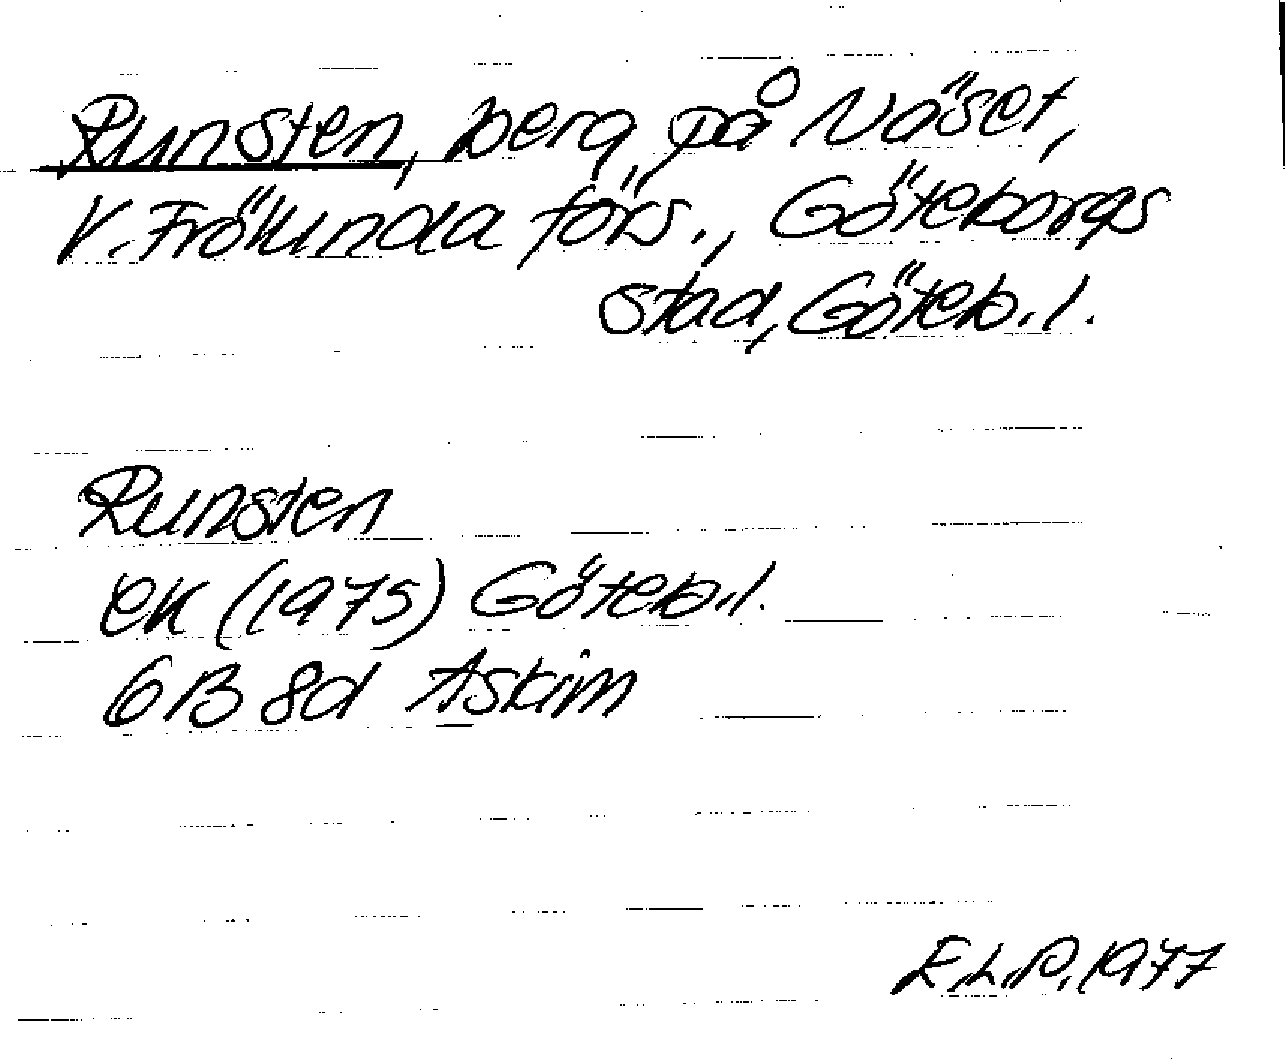 Runsten, berg på Näset,
V. Frölunda förs., Göteborgs
stad, Göteb. l.
Runsten
ek (1975) Göteb. l.
6B 8d Askim
E.L.P. 1977